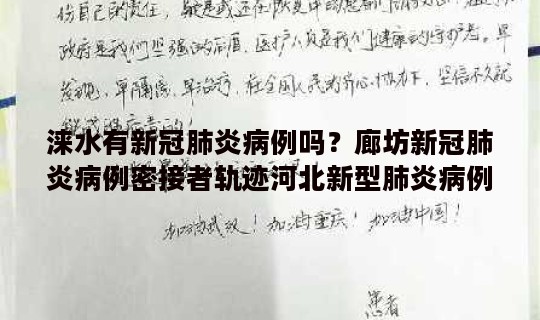 份自己的责任，
政府是我们坚强的后盾，医护人员是我们健康的守护者。早
发现，早隔离，早治疗，在全国人民的齐心协力下，坚信不久就
涞水有新冠肺炎病例吗？廊坊新冠肺
炎病例密接者轨迹河北新型肺炎病例
加油武汉！加油重庆！加油中国！
患者